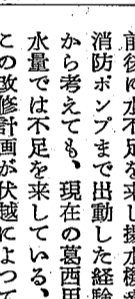 前後に水不足を来し揚水機
消防ポンプまで出動した経験
から考えても、現在の葛西用
水量では不足を来している、
この改修計画が伏越によって